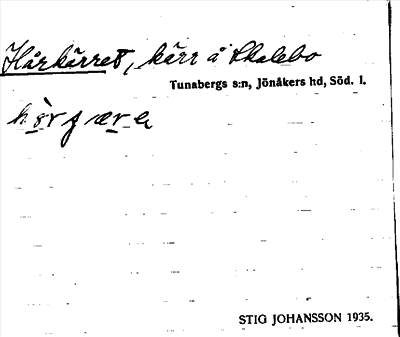 Hårkärret, kärr å Skalebo
Tunabergs s:n, Jönåkers hd, Söd. l.
STIG JOHANSSON 1935.